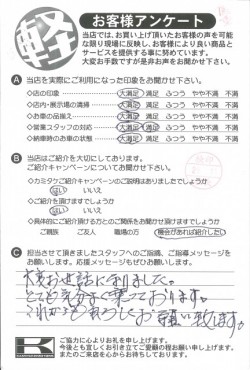 軽
お客様アンケート
当店では、お買い上げ頂いたお客様の声を可能
な限り現場に反映し、お客様により良い商品と
サービスを提供する事に努めています。
大変お手数ですが是非お声をお聞かせ下さい。
A 当店を実際にご利用になった印象をお聞かせ下さい。
◇店の印象 大満足 満足 ふつう やや不満 不満
◇店内・展示場の清掃 大満足 満足 ふつう やや不満 不満
◇お車の品揃え 大満足 満足 ふつう やや不満 不満
◇営業スタッフの対応 大満足 満足 ふつう やや不満 不満
◇納車時のお車の状態 大満足 満足 ふつう やや不満 不満
B 当店はご紹介を大切にしております。
ご紹介キャンペーンについてお聞かせ下さい。
◇カミタケご紹介キャンペーンのご説明はありましたでしょうか
はい いいえ
◇ご紹介キャンペーンにご協力頂けますでしょうか
はい いいえ
◇具体的にご紹介頂ける方との関係をお聞かせ頂けますでしょうか
ご親族 ご友人 職場の方 機会があれば紹介したい
C 担当させて頂きましたスタッフへのご指摘、ご指導メッセージを
お願いします。応援メッセージもぜひお願いします。
大変お世話に利りました。
とても気分よく乗っております。
これからもよろしくお願い致します。
K
ご協力に心よりお礼を申し上げます。
今後とも宜しくお引き立てご愛顧の程お願い申し上げます。
またのご来店を心からお待ちしております。